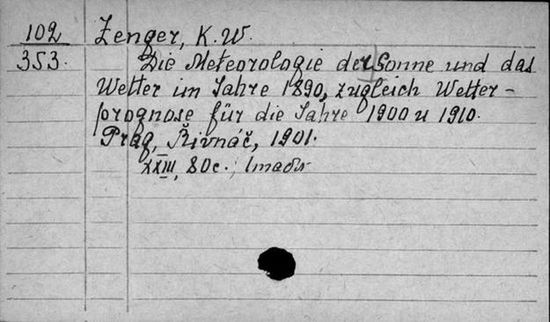 102 Zenger, K. W.
353. Die Meteorologie der Sonne und das
Wetter im Jahre 1890, zugleich Wetter-
prognose für die Jahre 1900 u 1910.
Prag, Řivnáč, 1901.
XXIII, 80c.;